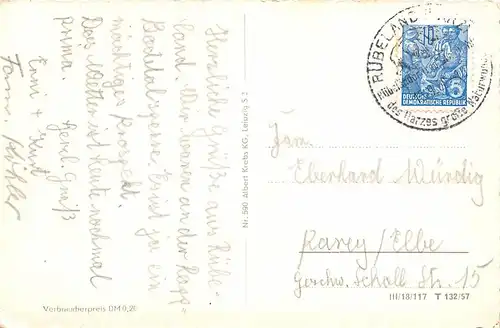 Herzliche Grüße aus Rübe-
land. Wir
an der Rapp-
Bodetalsperre. Es ist ja ein
mächtiges
Das Wetter ist heute nochmal
prima.
Herzl. Grüße
Erni + Kurt
Fam. Köhler
Verbraucherpreis DM 0,20
Nr. 590 Albert Krebs KG, Leipzig S 3
RÜBELAND
des Harzes große Naturwunder
10
DEUTSCHE
DEMOKRATISCHE REPUBLIK
Fam.
Eberhard Würdig
Parey/Elbe
Geschw. Scholl Str. 15
III/18/117 T 132/57